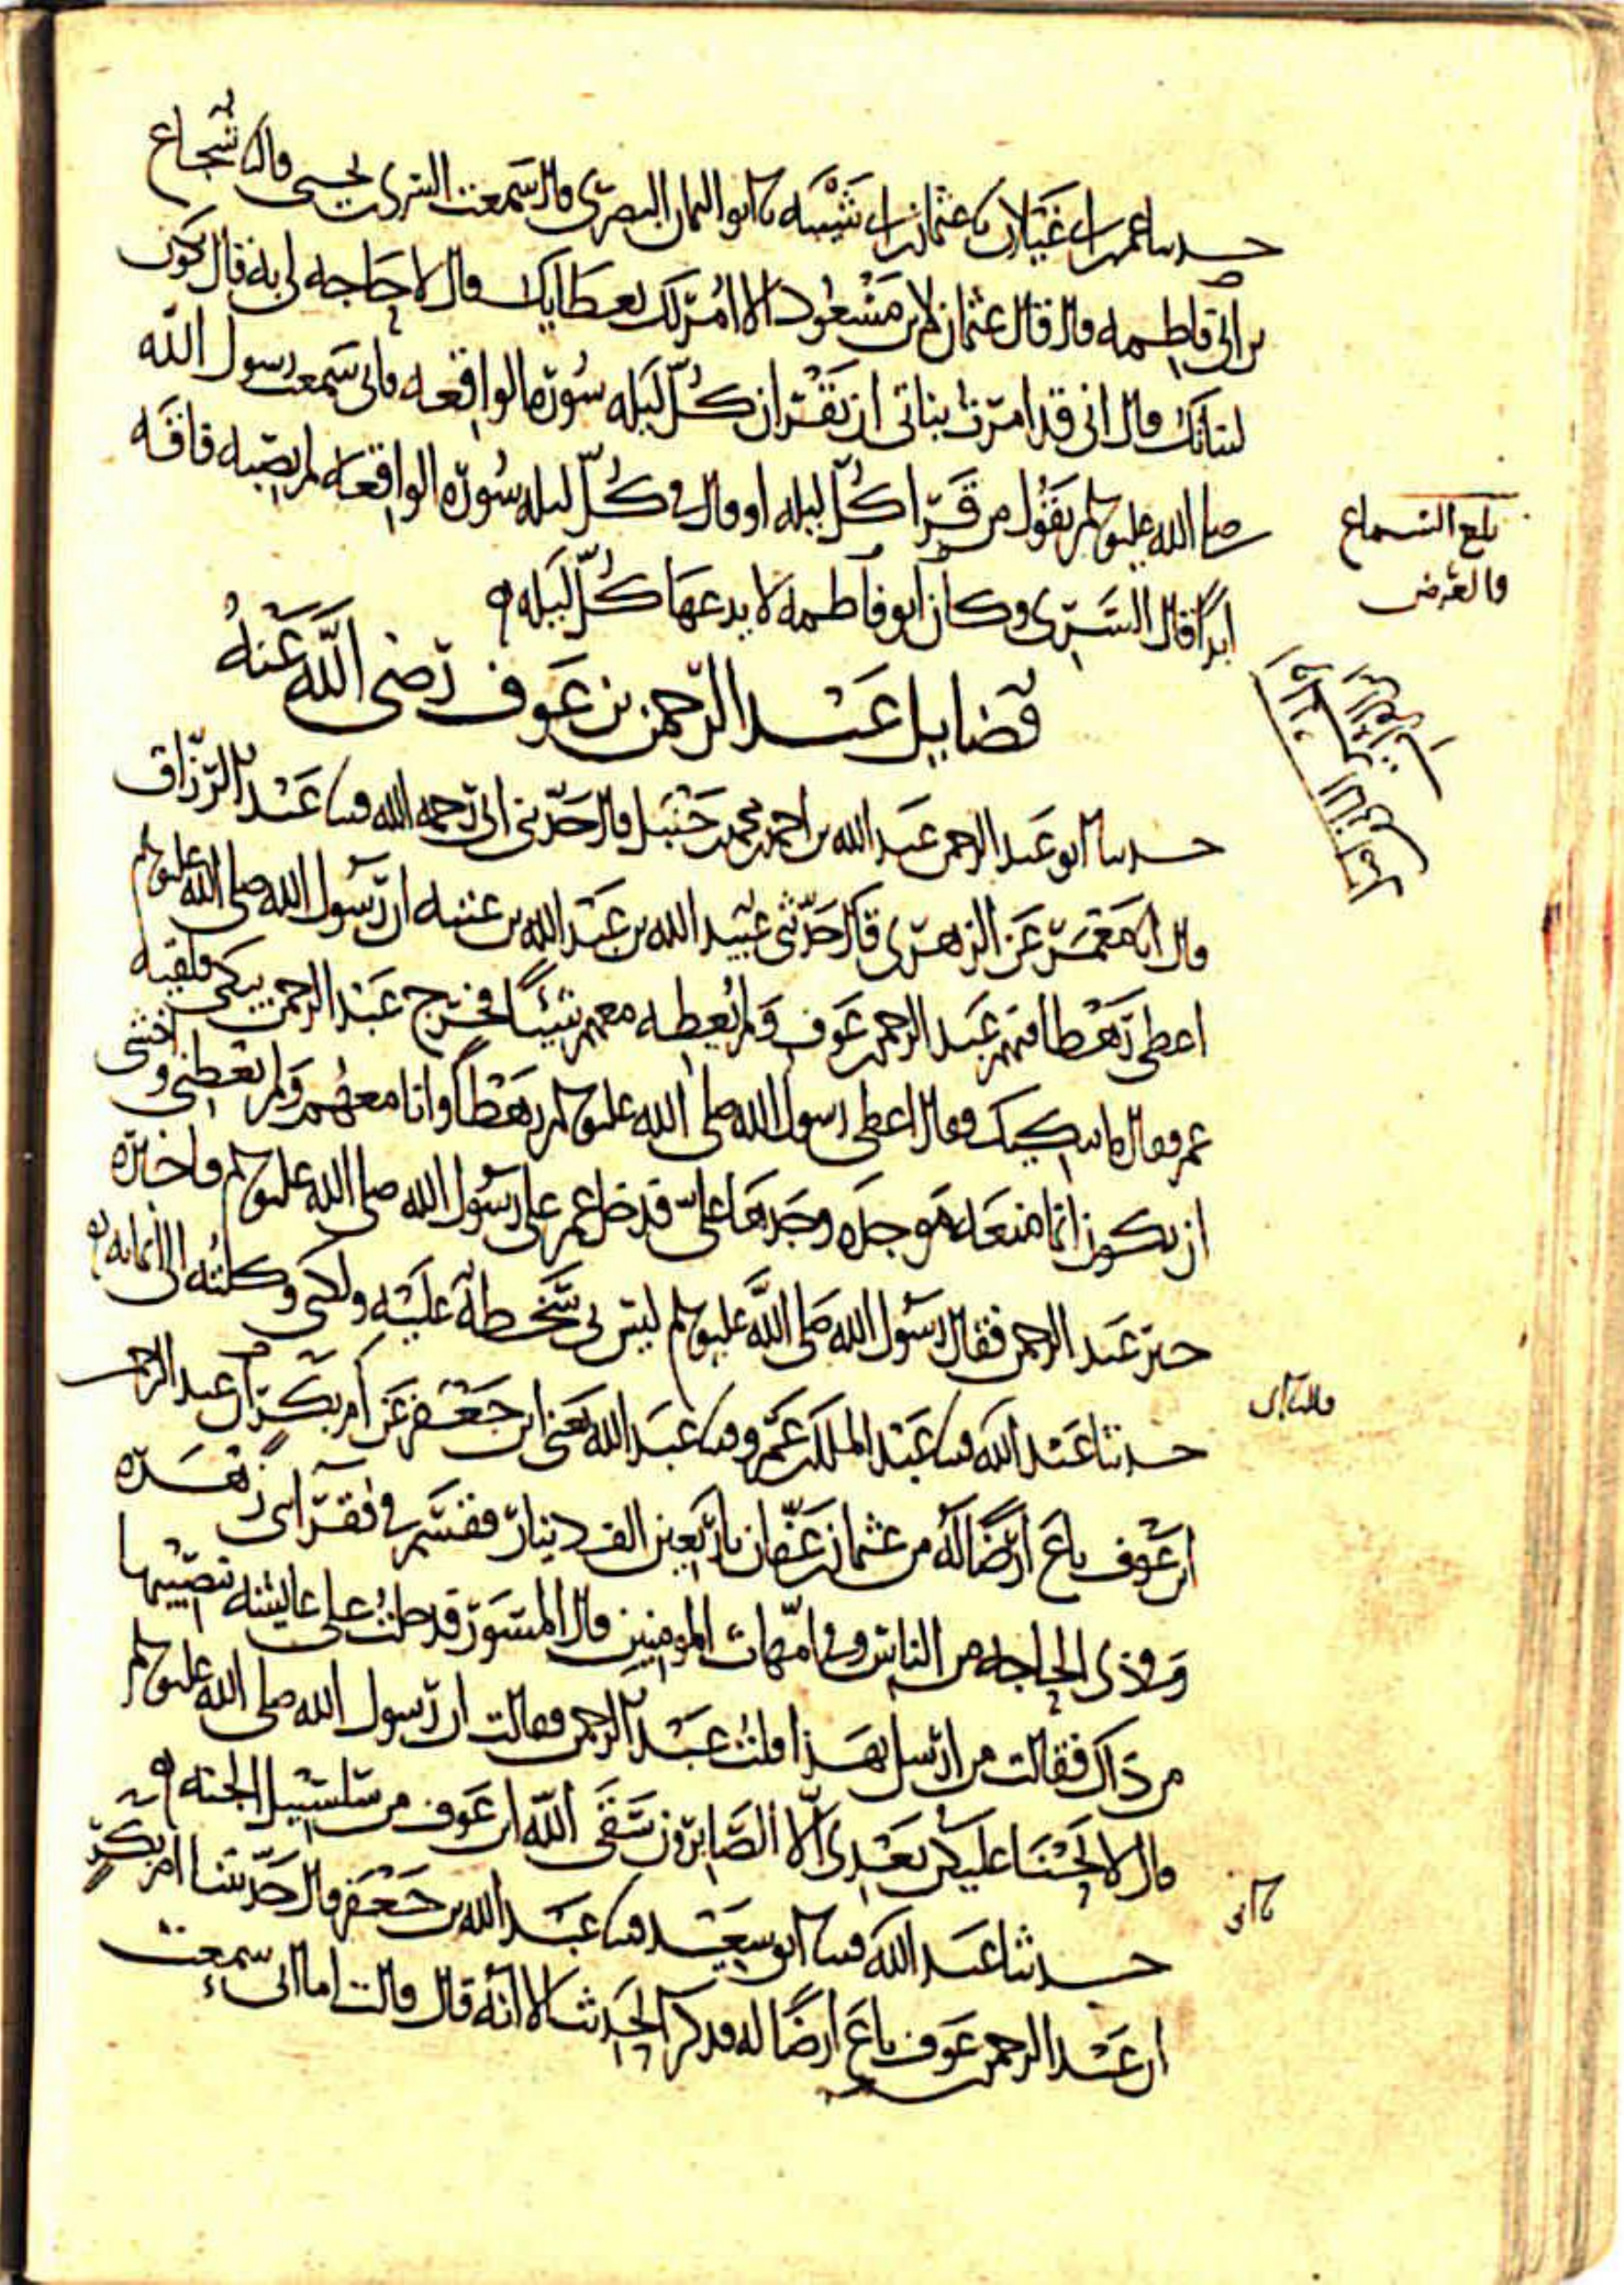 حدثنا عمر بن غيلان نا عثمان بن ابي شيبه نا ابو اليمان البصري قال سمعت السري بن يحيى قال نا شجاع
بن ابي فاطمه قال قال عثمان لابن مسعود الا امر لك بعطايك قال لا حاجه لي به قال يكون
لبناتك قال اني قد امرت بناتي ان يقران كل ليله سورة الواقعه فاني سمعت رسول الله
صلى الله عليه وسلم يقول من قرا كل ليله او قال في كل ليله سورة الواقعه لم يصبه فاقه
ابدا قال السري وكان ابو فاطمه لا يدعها كل ليله
بلغ السماع
والعرض
فضايل عبد الرحمن بن عوف رضي الله عنه
حدثنا ابو عبد الرحمن عبد الله بن احمد بن محمد بن حنبل قال حدثني ابي رحمه الله قثنا عبد الرزاق
قال انا معمر عن الزهري قال حدثني عبيد الله بن عبد الله بن عتبه ان رسول الله صلى الله عليه وسلم
اعطى رهطا فيهم عبد الرحمن بن عوف ولم يعطه معهم شيئا فخرج عبد الرحمن يبكي فلقيه
عمر فقال ما يبكيك فقال اعطى رسول الله صلى الله عليه وسلم رهطا وانا معهم ولم يعطني واخشى
ان يكون انما منعه موجده وجدها علي فدخل عمر على رسول الله صلى الله عليه وسلم فاخبره
خبر عبد الرحمن فقال رسول الله صلى الله عليه وسلم ليس بي سخطة عليه ولكني وكلته الى ايمانه
حدثنا عبد الله قثنا عبد الملك بن عمرو قثنا عبد الله يعني ابن جعفر عن ام بكر ان عبد الرحمن
ابن عوف باع ارضا له من عثمان بن عفان باربعين الف دينار فقسم في فقرا بني زهره
وفي ذي الحاجه من الناس وفي امهات المومنين قال المسور فدخلت على عايشه بنصيبها
من ذاك فقالت من ارسل بهذا قلت عبد الرحمن فقالت ان رسول الله صلى الله عليه وسلم
قال لا يحنا عليكن بعدي الا الصابرون سقى الله ابن عوف من سلسبيل الجنه
حدثنا عبد الله قثنا ابو سعيد قثنا عبد الله بن جعفر قال حدثتنا ام بكر
ان عبد الرحمن بن عوف باع ارضا له فذكر الحديث الا انه قال قالت اما اني سمعت